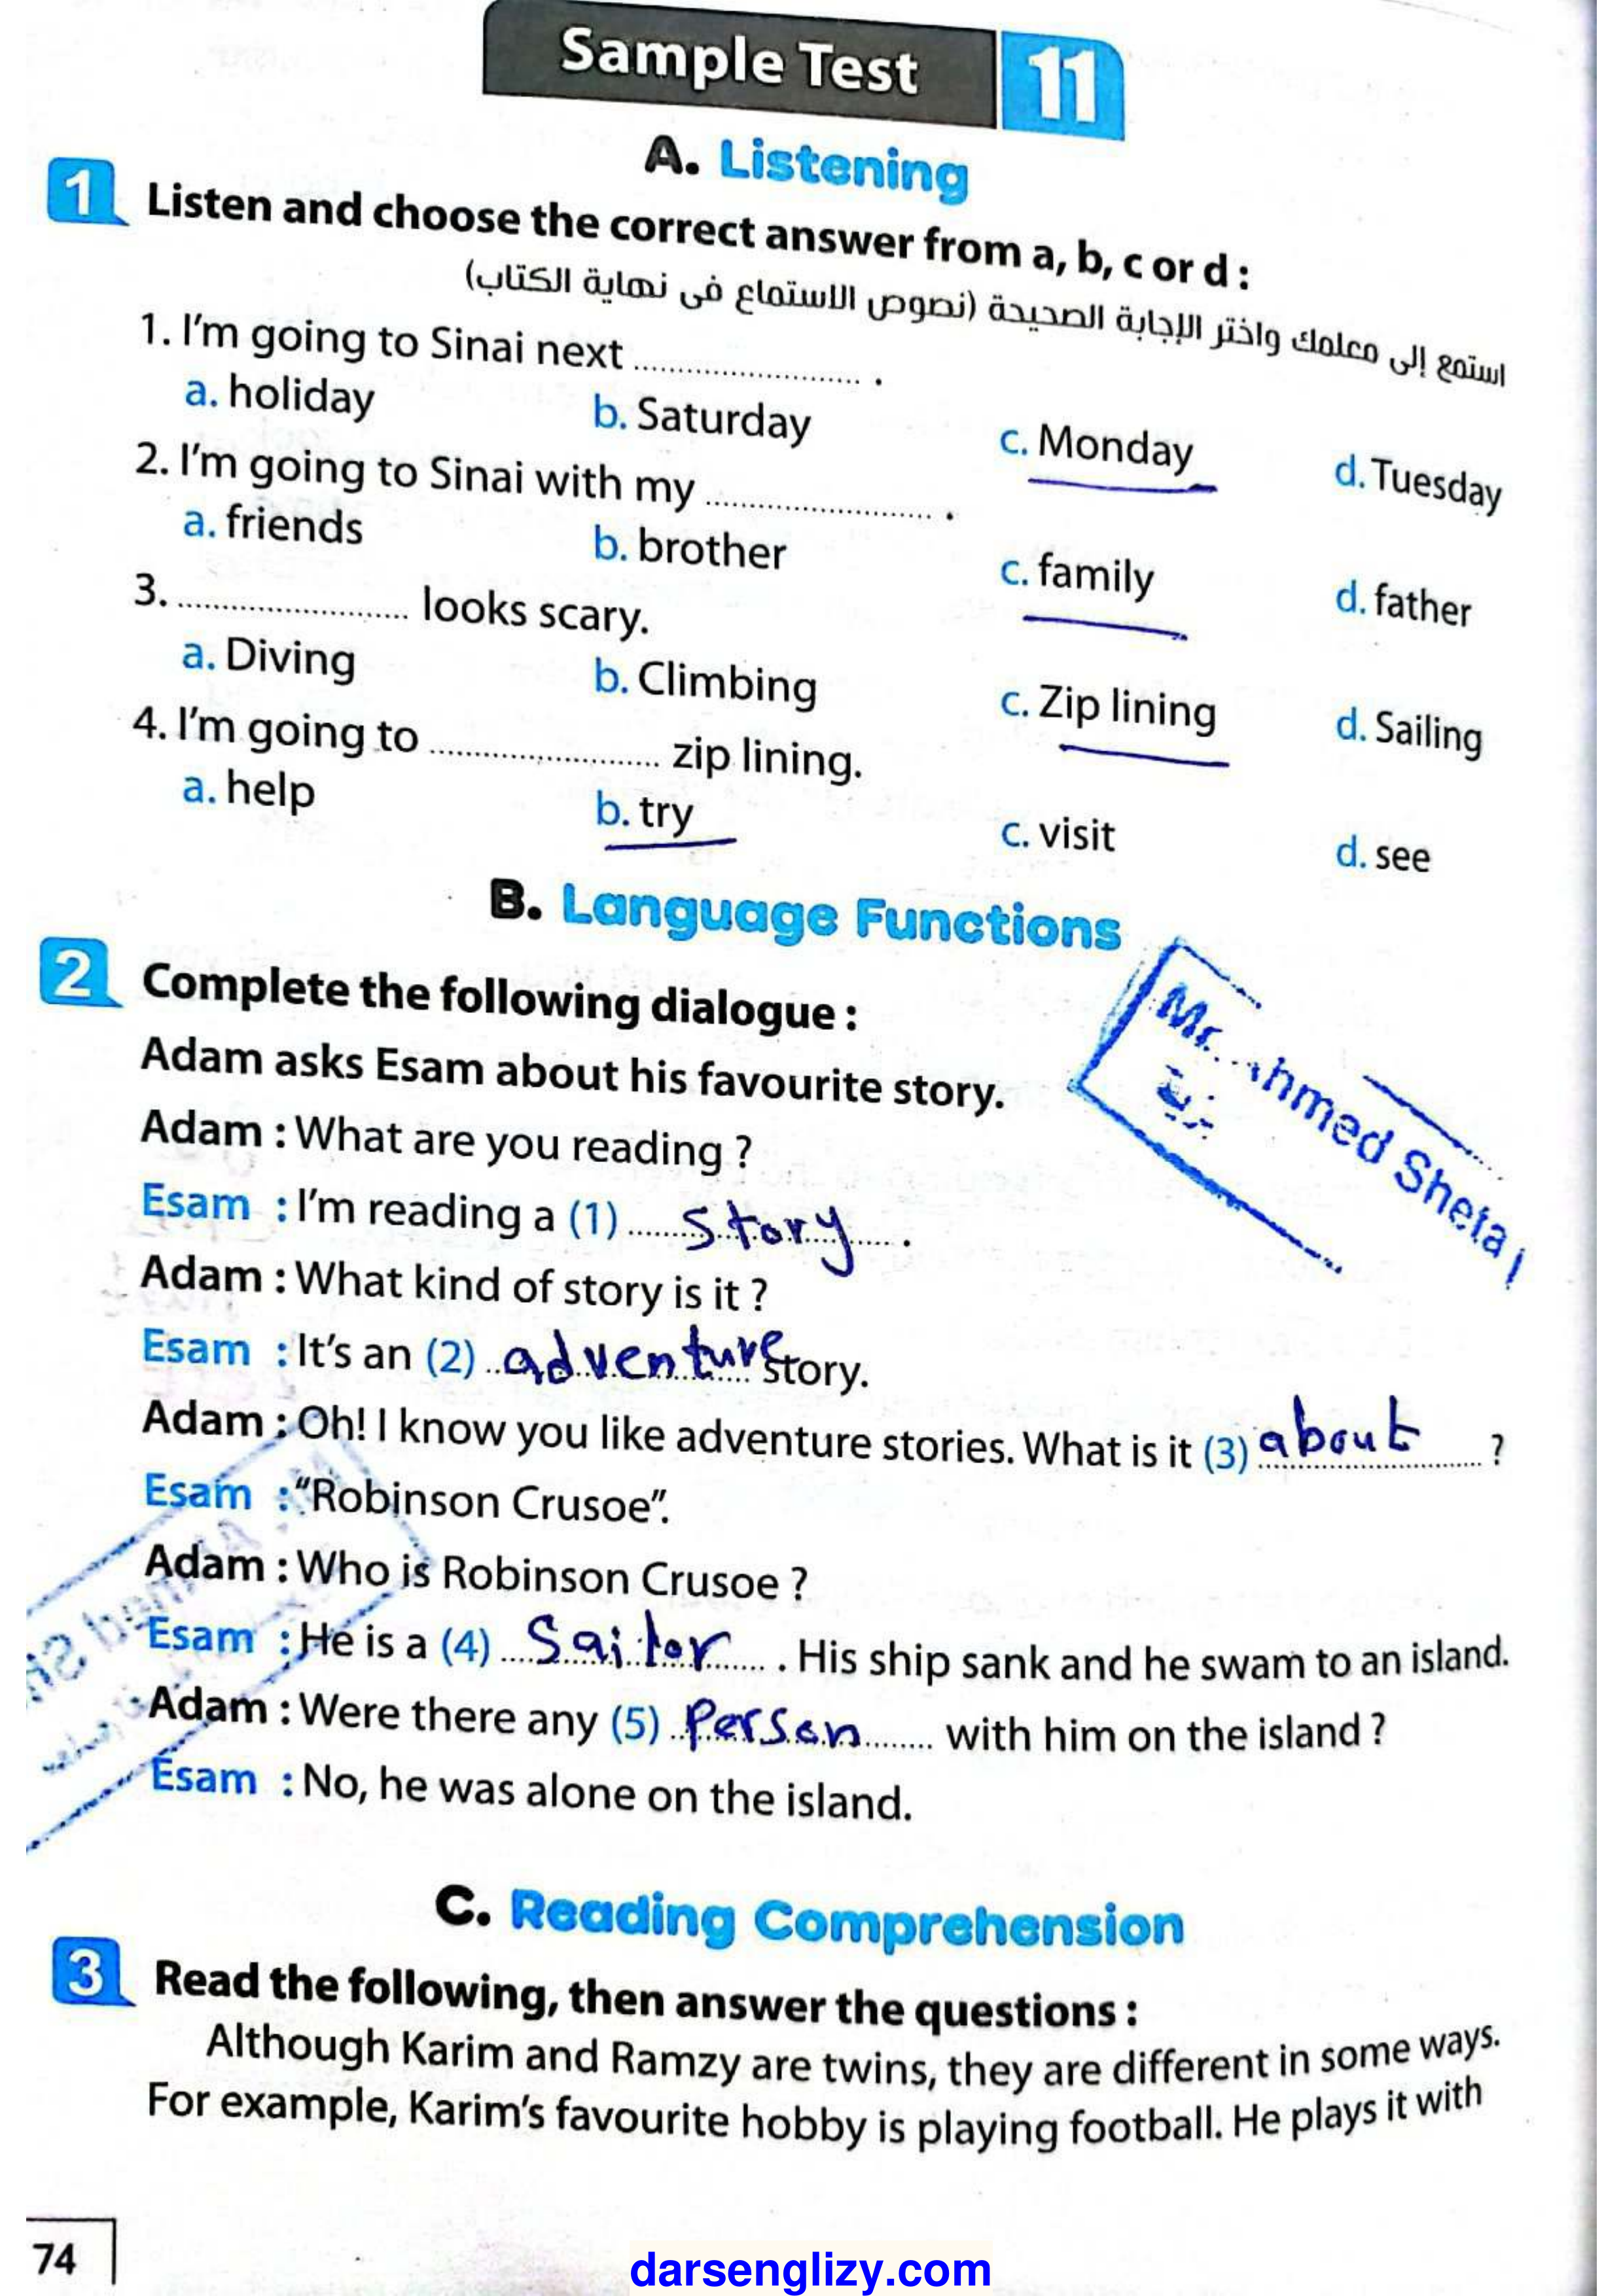 Sample Test 11
A. Listening
1 Listen and choose the correct answer from a, b, c or d :
استمع إلى معلمك واختر الإجابة الصحيحة (نصوص الاستماع فى نهاية الكتاب)
1. I'm going to Sinai next ........................ .
a. holiday b. Saturday c. Monday d. Tuesday
2. I'm going to Sinai with my ........................ .
a. friends b. brother c. family d. father
3. ........................ looks scary.
a. Diving b. Climbing c. Zip lining d. Sailing
4. I'm going to ........................ zip lining.
a. help b. try c. visit d. see
B. Language Functions
2 Complete the following dialogue :
Adam asks Esam about his favourite story.
Adam : What are you reading ?
Esam : I'm reading a (1) story .
Adam : What kind of story is it ?
Esam : It's an (2) adventure story.
Adam : Oh! I know you like adventure stories. What is it (3) about ?
Esam : "Robinson Crusoe".
Adam : Who is Robinson Crusoe ?
Esam : He is a (4) Sailor . His ship sank and he swam to an island.
Adam : Were there any (5) Person with him on the island ?
Esam : No, he was alone on the island.
Mr. hmed Sheta
C. Reading Comprehension
3 Read the following, then answer the questions :
Although Karim and Ramzy are twins, they are different in some ways.
For example, Karim's favourite hobby is playing football. He plays it with
74
darsenglizy.com